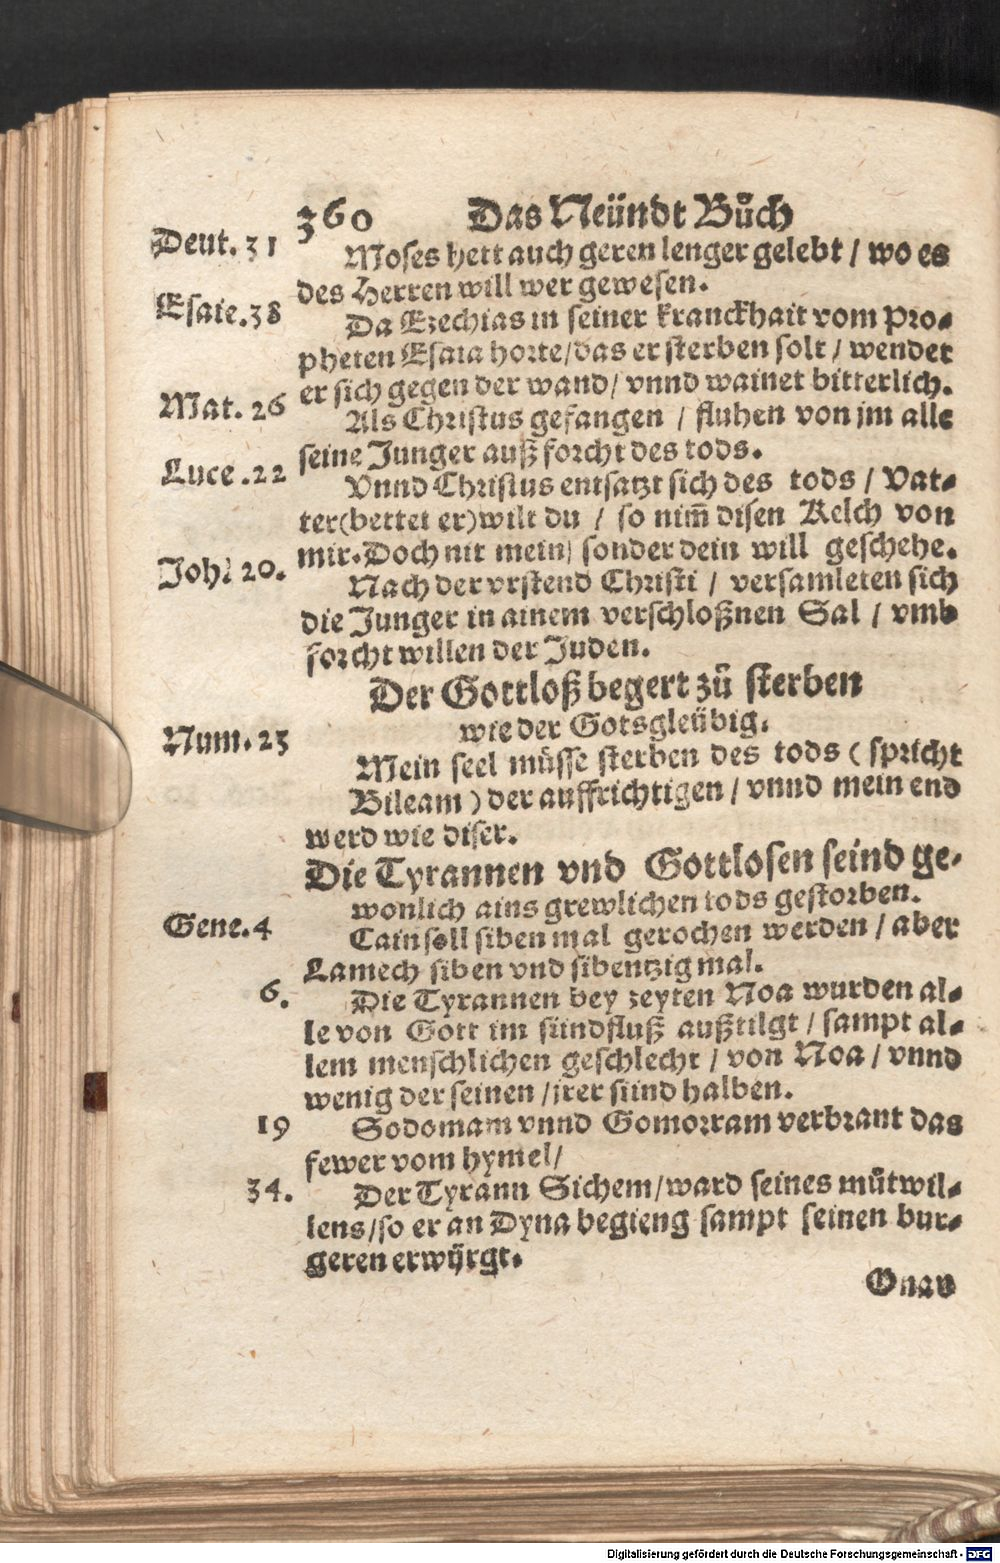 360 Das Neündt Bůch
Deut. 31
Moses hett auch geren lenger gelebt / wo es
des Herren will wer gewesen.
Esaie. 38
Da Ezechias in seiner kranckhait vom Pro-
pheten Esaia horte/das er sterben solt / wendet
er sich gegen der wand/ vnnd wainet bitterlich.
Mat. 26
Als Christus gefangen / fluhen von jm alle
seine Junger auß forcht des tods.
Luce. 22
Vnnd Christus entsatzt sich des tods / Vat-
ter(bettet er)wilt du / so nim̄ disen Kelch von
mir. Doch nit mein/ sonder dein will geschehe.
Joh. 20.
Nach der vrstend Christi / versamleten sich
die Junger in ainem verschloßnen Sal / vmb
forcht willen der Juden.
Der Gottloß begert zů sterben
wie der Gotsgleübig.
Num. 23
Mein seel müsse sterben des tods ( spricht
Bileam ) der auffrichtigen / vnnd mein end
werd wie diser.
Die Tyrannen vnd Gottlosen seind ge-
wonlich ains grewlichen tods gestorben.
Gene. 4
Cain soll siben mal gerochen werden / aber
Lamech siben vnd sibentzig mal.
6.
Die Tyrannen bey zeyten Noa wurden al-
le von Gott im sündfluß außtilgt / sampt al-
lem menschlichen geschlecht / von Noa / vnnd
wenig der seinen /jrer sünd halben.
19
Sodomam vnnd Gomorram verbrant das
fewer vom hymel/
34.
Der Tyrann Sichem/ward seines můtwil-
lens/so er an Dyna begieng sampt seinen bur-
geren erwürgt.
Onan
Digitalisierung gefördert durch die Deutsche Forschungsgemeinschaft - DFG